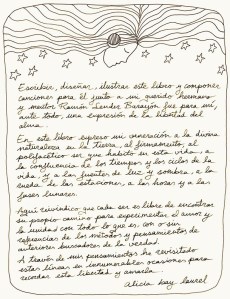 Escribir, diseñar, ilustrar este libro y componer
canciones para él junto a mi querido hermano
y mentor Ramón Sender Barayón fue para mí,
ante todo, una expresión de la libertad del
alma.
En este libro expreso mi veneración a la divina
naturaleza en la tierra, al firmamento, al
polifacético ser que habita en esta vida, a
la confluencia de los tiempos y los ciclos de la
vida, y a las fuentes de luz y sombra, a la
rueda de las estaciones, a las horas y a las
fases lunares.
Aquí reivindico que cada ser es libre de encontrar
su propio camino para experimentar el amor y
la unidad con todo lo que es, con o sin
referencias de los métodos y pensamientos de
anteriores buscadores de la verdad.
A través de mis pensamientos he revisitado
estas líneas en innumerables ocasiones para
recordar esta libertad y amarla.
alicia bay laurel